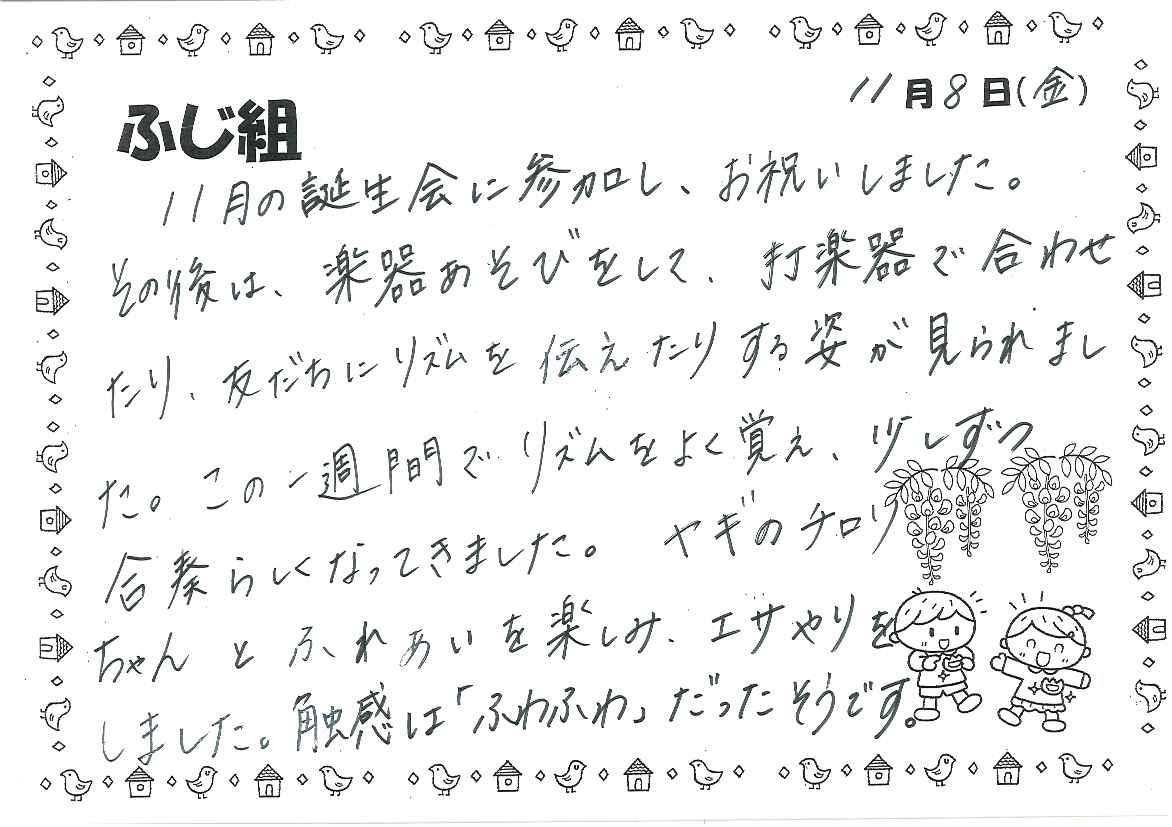 11月8日(金)
ふじ組
11月の誕生会に参加し、お祝いしました。
その後は、楽器あそびをして、打楽器で合わせ
たり、友だちにリズムを伝えたりする姿が見られまし
た。この一週間でリズムをよく覚え、少しずつ
合奏らしくなってきました。 ヤギのチロリ
ちゃんとふれあいを楽しみ、エサやりを
しました。触感は「ふわふわ」だったそうです。